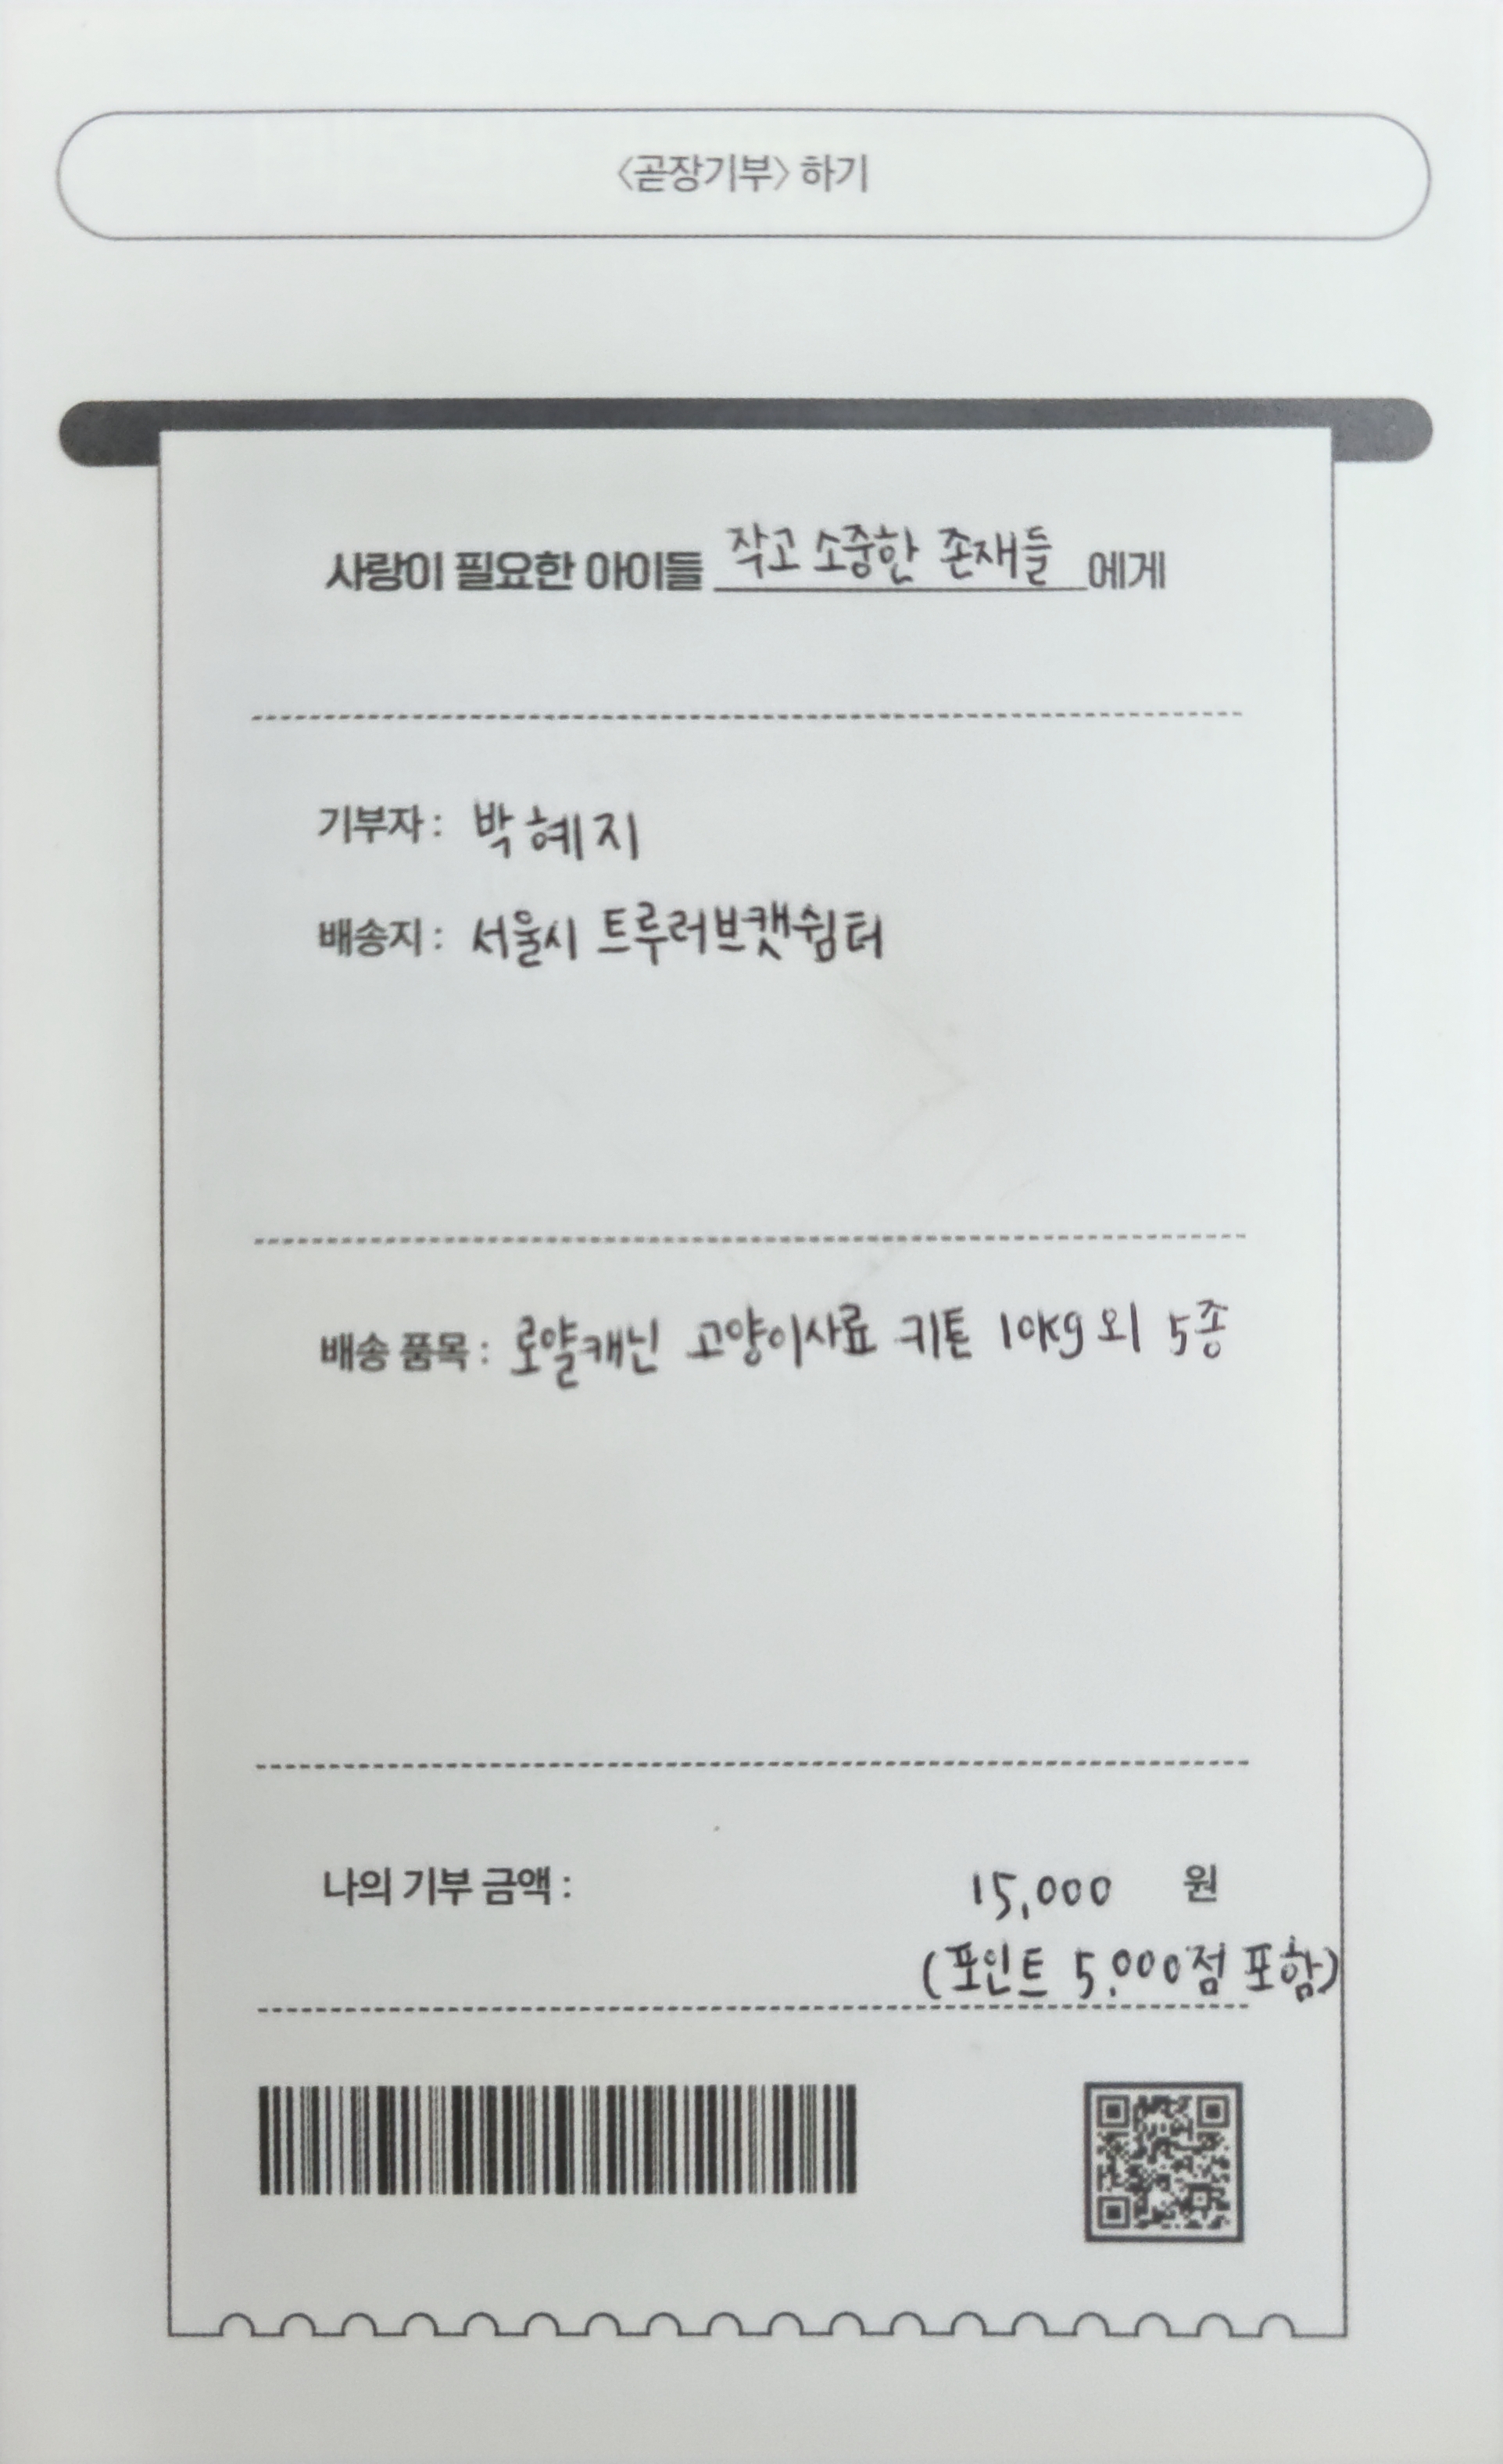 <곧장기부> 하기
사랑이 필요한 아이들 작고 소중한 존재들 에게
기부자 : 박혜지
배송지 : 서울시 트루러브캣쉼터
배송 품목 : 로얄캐닌 고양이사료 키튼 10kg 외 5종
나의 기부 금액 : 15,000 원
(포인트 5,000점 포함)